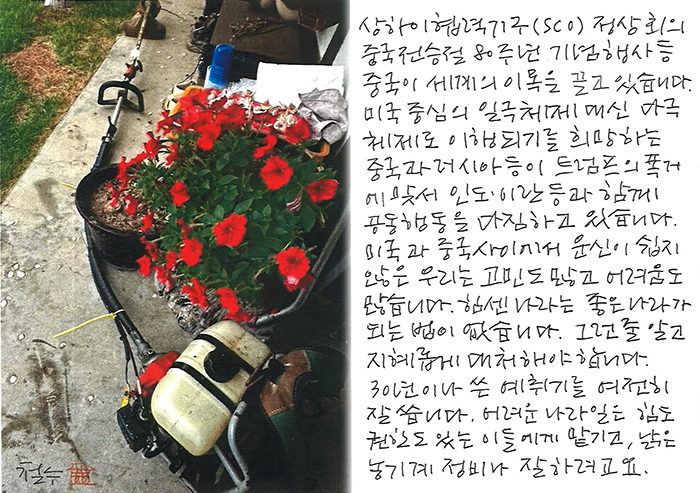 상하이협력기구(SCO) 정상회의
중국전승절 80주년 기념행사 등
중국이 세계의 이목을 끌고 있습니다.
미국 중심의 일극체제 대신 다극
체제로 이행되기를 희망하는
중국과 러시아 등이 트럼프의 폭거
에 맞서 인도·이란 등과 함께
공동행동을 다짐하고 있습니다.
미국과 중국 사이에서 운신이 쉽지
않은 우리는 고민도 많고 어려움도
많습니다. 힘센 나라는 좋은 나라가
되는 법이 없습니다. 그런 줄 알고
지혜롭게 대처해야 합니다.
30년이나 쓴 예취기를 여전히
잘 씁니다. 어려운 나라일은 힘도
권한도 있는 이들에게 맡기고, 낡은
농기계 정비나 잘하려고요.
철수